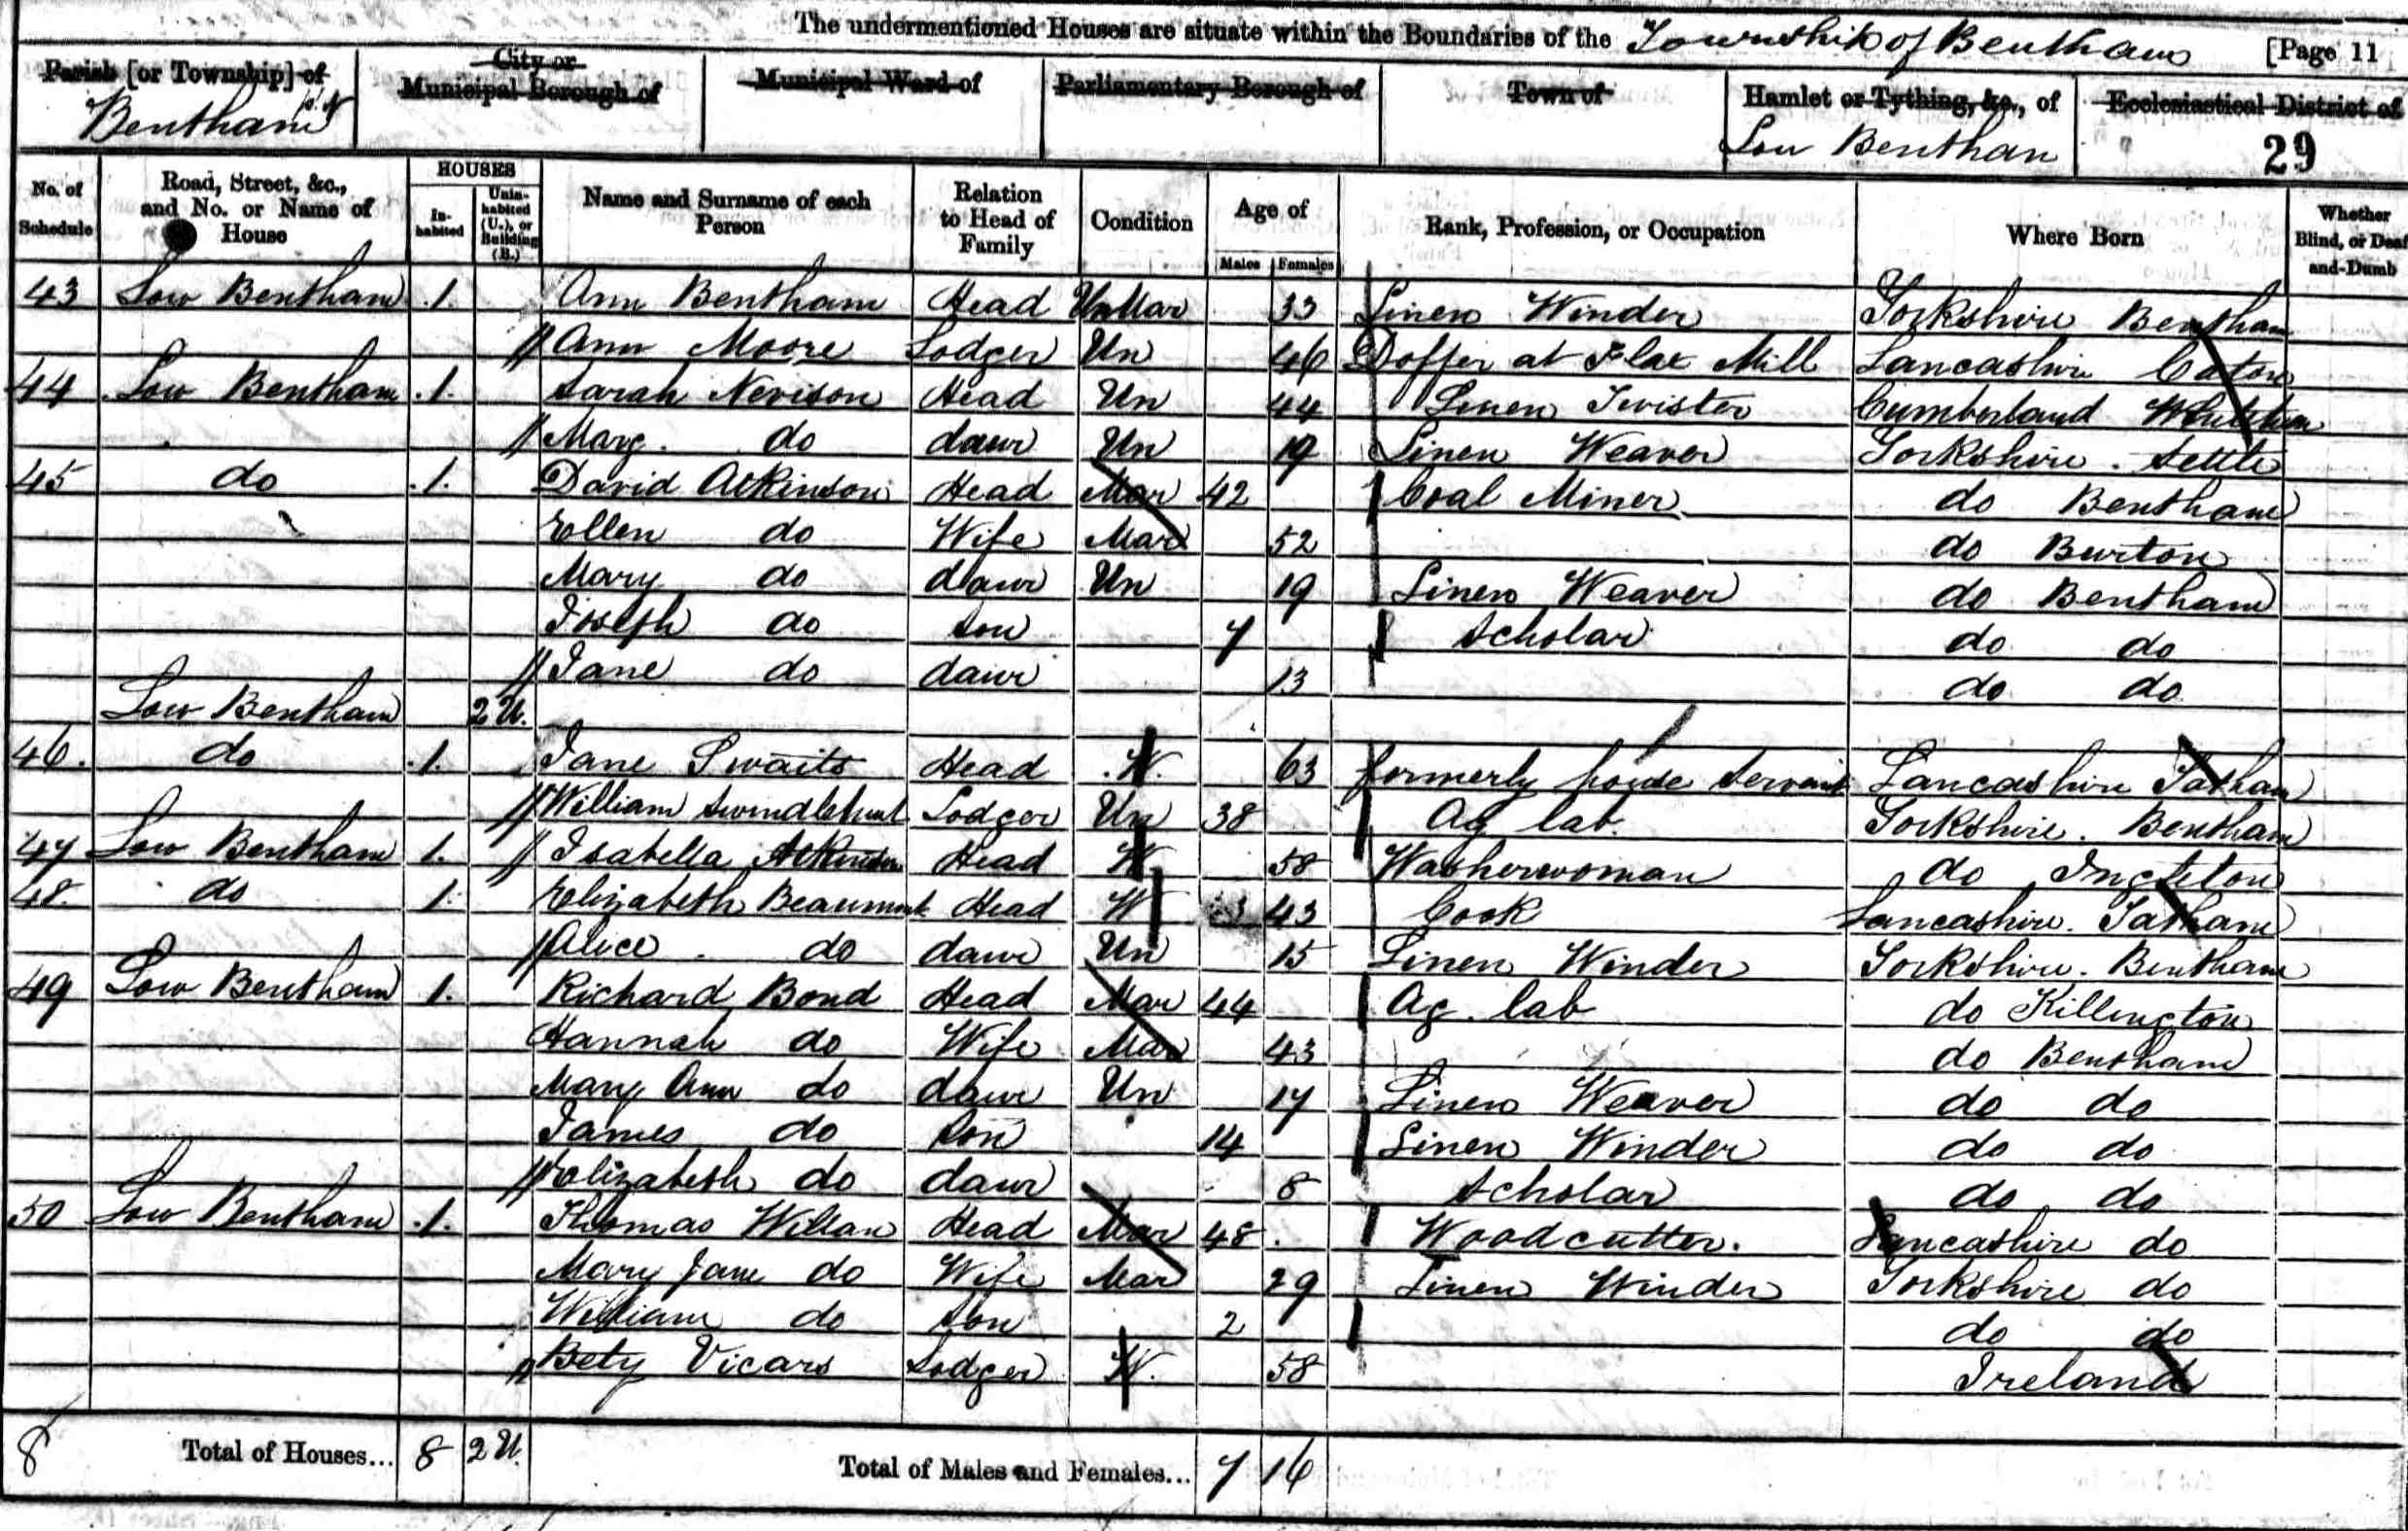 The undermentioned Houses are situate within the Boundaries of the Township of Bentham [Page 11
Parish [or Township] of Bentham
City or Municipal Borough of
Municipal Ward of
Parliamentary Borough of
Town of
Hamlet or Tything, &c., of Low Bentham
Ecclesiastical District of
29
No. of Schedule
Road, Street, &c., and No. or Name of House
HOUSES
In-habited
Unin-habited (U.), or Building (B.)
Name and Surname of each Person
Relation to Head of Family
Condition
Age of
Males Females
Rank, Profession, or Occupation
Where Born
Whether Blind, or Deaf-and-Dumb
43 Low Bentham 1 Ann Bentham Head UnMar 33 Linen Winder Yorkshire Bentham
Ann Moore Lodger Un 46 Doffer at Flax Mill Lancashire Caton
44 Low Bentham 1 Sarah Nevison Head Un 44 Linen Twister Cumberland
Marg. do daur Un 19 Linen Weaver Yorkshire Settle
45 do 1 David Atkinson Head Mar 42 Coal Miner do Bentham
Ellen do Wife Mar 52 do Burton
Mary do daur Un 19 Linen Weaver do Bentham
Joseph do son 7 Scholar do do
Jane do daur 13 do do
Low Bentham 2 U.
46. do 1 Jane Swaits Head W. 63 formerly house servant Lancashire Tatham
William Swindlehurst Lodger Un 38 Ag lab. Yorkshire. Bentham
47 Low Bentham 1. Isabella Atkinson Head W 58 Washerwoman do Ingleton
48. do 1 Elizabeth Beaumont Head W 43 Cook Lancashire. Tatham
Alice do daur Un 15 Linen Winder Yorkshire. Bentham
49 Low Bentham 1. Richard Bond Head Mar 44 Ag. lab do Killington
Hannah do Wife Mar 43 do Bentham
Mary Ann do daur Un 17 Linen Weaver do do
James do son 14 Linen Winder do do
Elizabeth do daur 8 Scholar do do
50 Low Bentham 1. Thomas Willan Head Mar 48 Woodcutter. Lancashire do
Mary Jane do Wife Mar 29 Linen Winder Yorkshire do
William do son 2 do do
Bety Vicars Lodger W. 58 Ireland
8 Total of Houses... 8 2 U. Total of Males and Females... 7 16